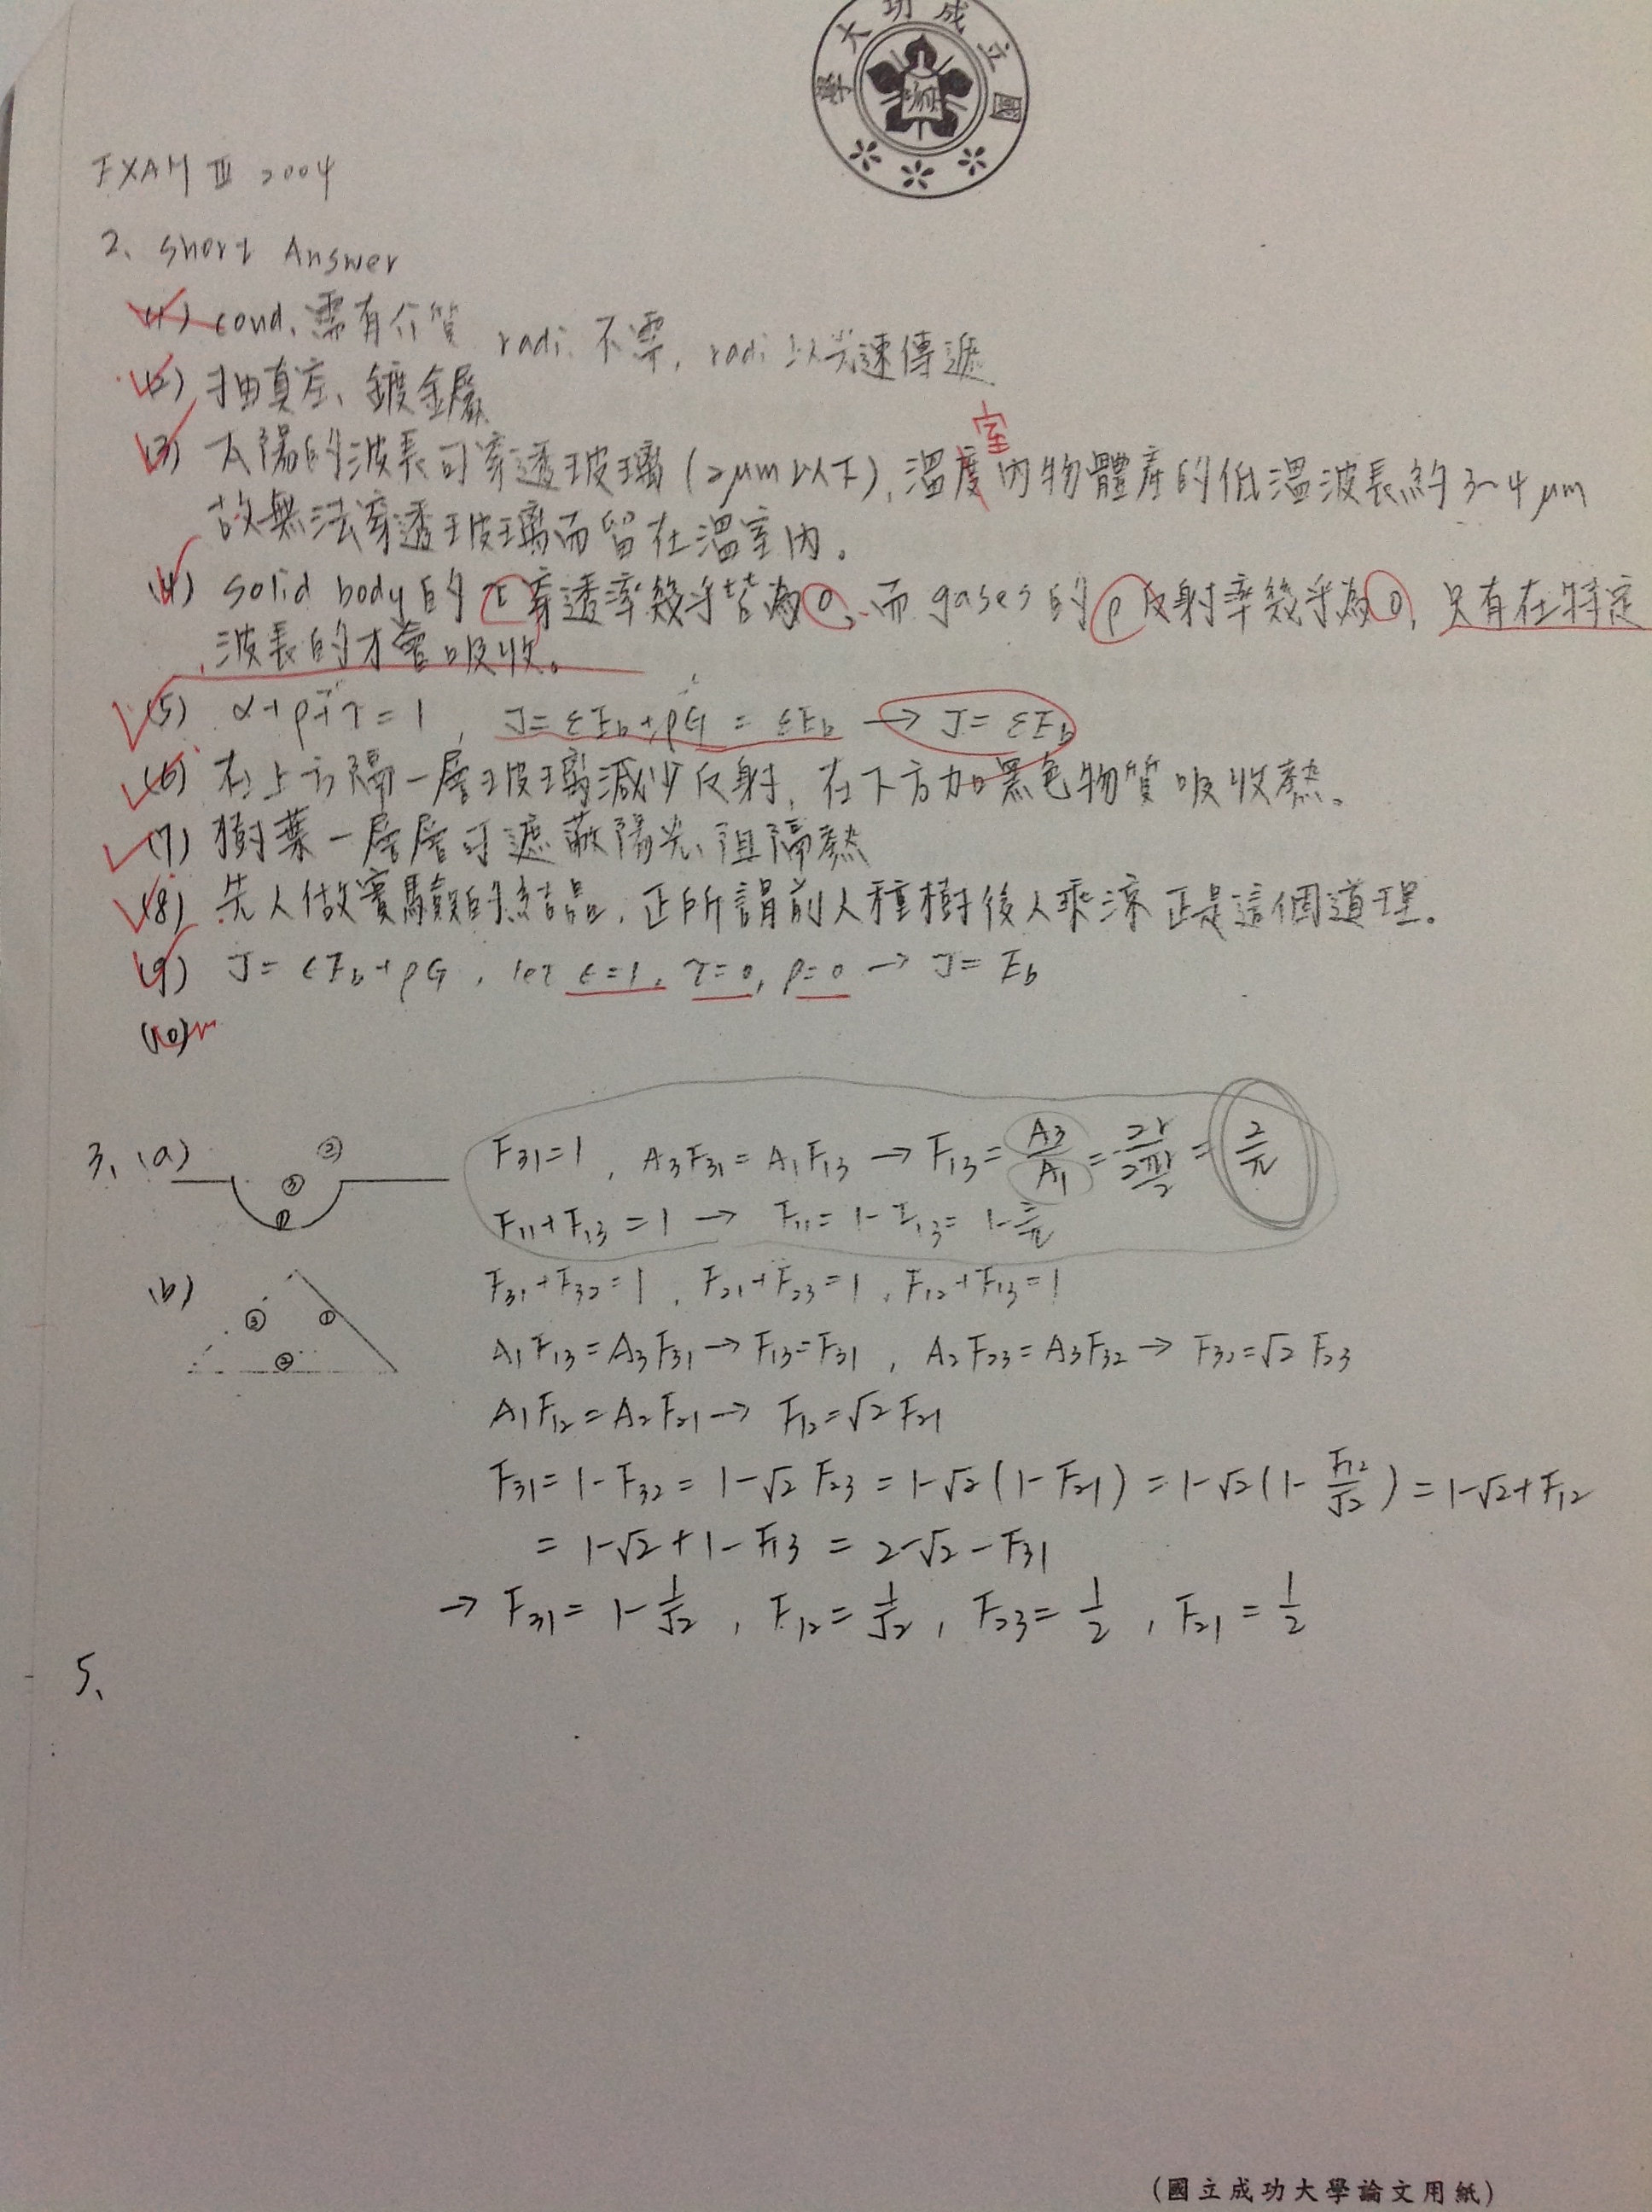 國立成功大學
EXAM III 2004
2、short Answer
(1) cond、需有介質 radi 不需, radi 以光速傳遞
(2) 抽真空、鍍金屬
(3) 太陽的波長可穿透玻璃 (2μm以下), 溫度室內物體產的低溫波長約 3~4 μm
故無法穿透玻璃而留在溫室內。
(4) solid body的 τ 穿透率幾乎皆為0, 而 gases 的 ρ 反射率幾乎為0, 只有在特定
波長的才會吸收。
(5) α+ρ+τ=1, J=εEb+ρG = εEb → J= εEb
(6) 在上方隔一層玻璃減少反射, 在下方加黑色物質吸收熱。
(7) 樹葉一層層可遮蔽陽光、阻隔熱
(8) 先人做實驗的結晶, 正所謂前人種樹後人乘涼 正是這個道理。
(9) J= εEb+ρG, let ε=1, τ=0, ρ=0 → J= Eb
(10)
3、(a) ② ③ ① F31=1, A3F31=A1F13 → F13= A3/A1 = 2r/(2πr/2) = 2/π
F11+F13=1 → F11= 1-F13= 1-2/π
(b) ③ ① ② F31+F32=1, F21+F23=1, F12+F13=1
A1F13=A3F31 → F13=F31, A2F23=A3F32 → F32=√2 F23
A1F12=A2F21 → F12=√2 F21
F31= 1-F32= 1-√2 F23 = 1-√2(1-F21) = 1-√2(1- F12/√2) = 1-√2+F12
= 1-√2+1-F13 = 2-√2-F31
→ F31= 1-1/√2, F12= 1/√2, F23= 1/2, F21= 1/2
5、
(國立成功大學論文用紙)